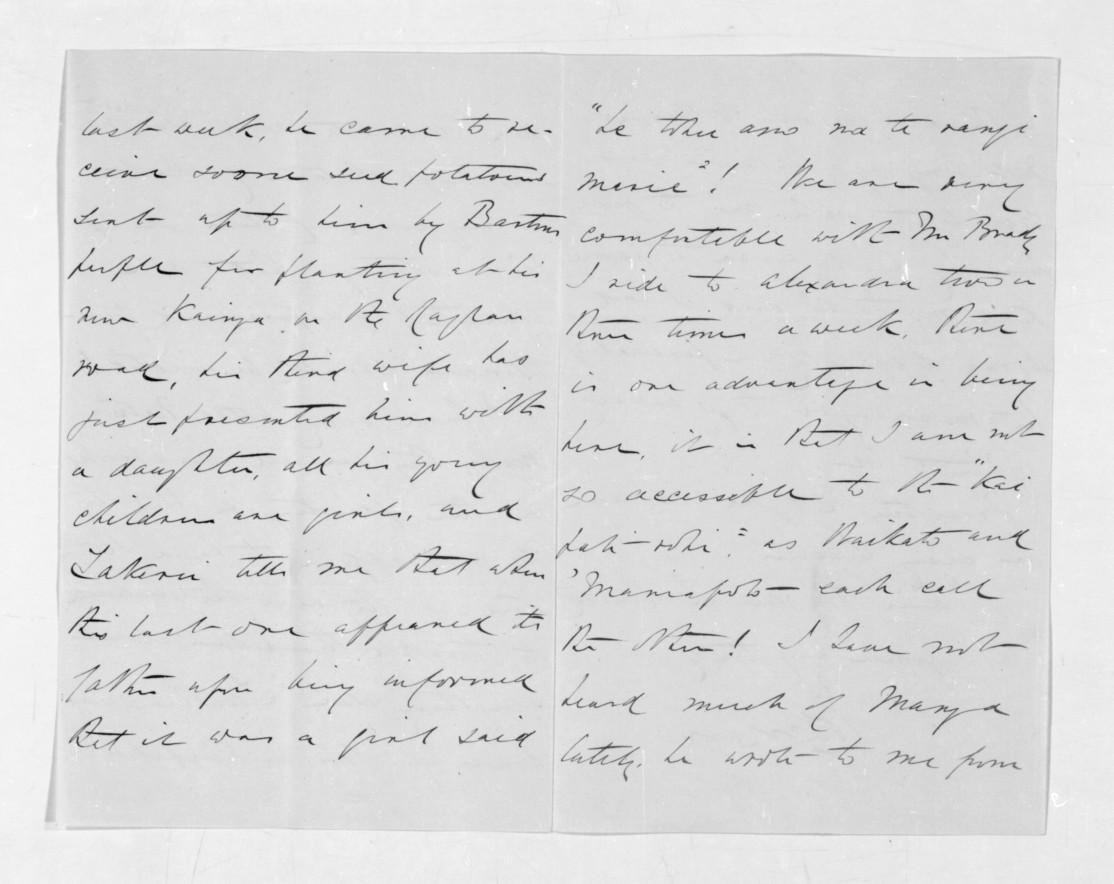 last week, he came to re-
ceive some seed potatoes
sent up to him by Bartons
people for planting at his
new Kainga on the Raglan
road, his third wife has
just presented him with
a daughter, all his young
children are girls, and
Takerei tells me that when
this last one appeared its
father upon being informed
that it was a girl said
"he tohu ano na te rangi
marie"! We are very
comfortable with Mr Brady
I ride to Alexandra two or
three times a week. There
is one advantage in being
here, it is that I am not
so accessible to the "Kai
as Waikato and
'Maniapoto - each call
the other! I have not
heard much of Manga
lately. he wrote to me from